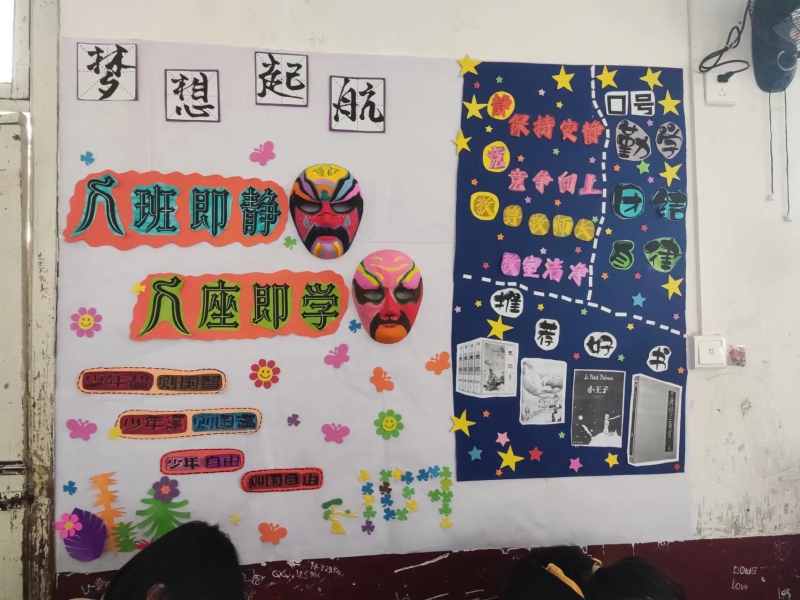 梦想起航
入班即静
入座即学
少年智 则国智
少年强 则国强
少年自由
则国自由
静
保持安静
竞
竞争向上
敬
尊敬师长
教室洁净
口号
勤学
团结
自律
推荐好书
Le Petit Prince
小王子
LOVE